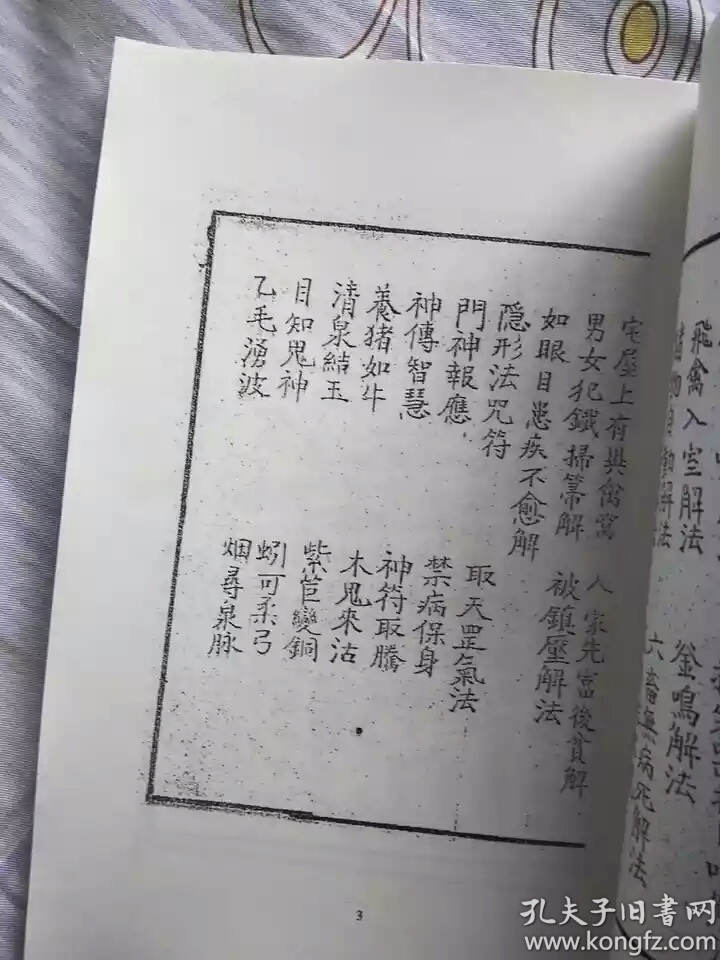 飛禽入室解法
釜鳴解法
六畜無病死解法
宅屋上有禽窩
人家先富後貧解
男女犯鐵掃箒解
被鎮壓解法
如眼目患疾不愈解
隐形法咒符
取天罡氣法
門神報應
禁病保身
神傳智慧
神符取騰
養猪如牛
木鬼來沽
清泉結玉
紫苣變銅
目知鬼神
蚓可柔弓
乙毛湧波
烟尋泉脉
3
孔夫子旧书网
www.kongfz.com